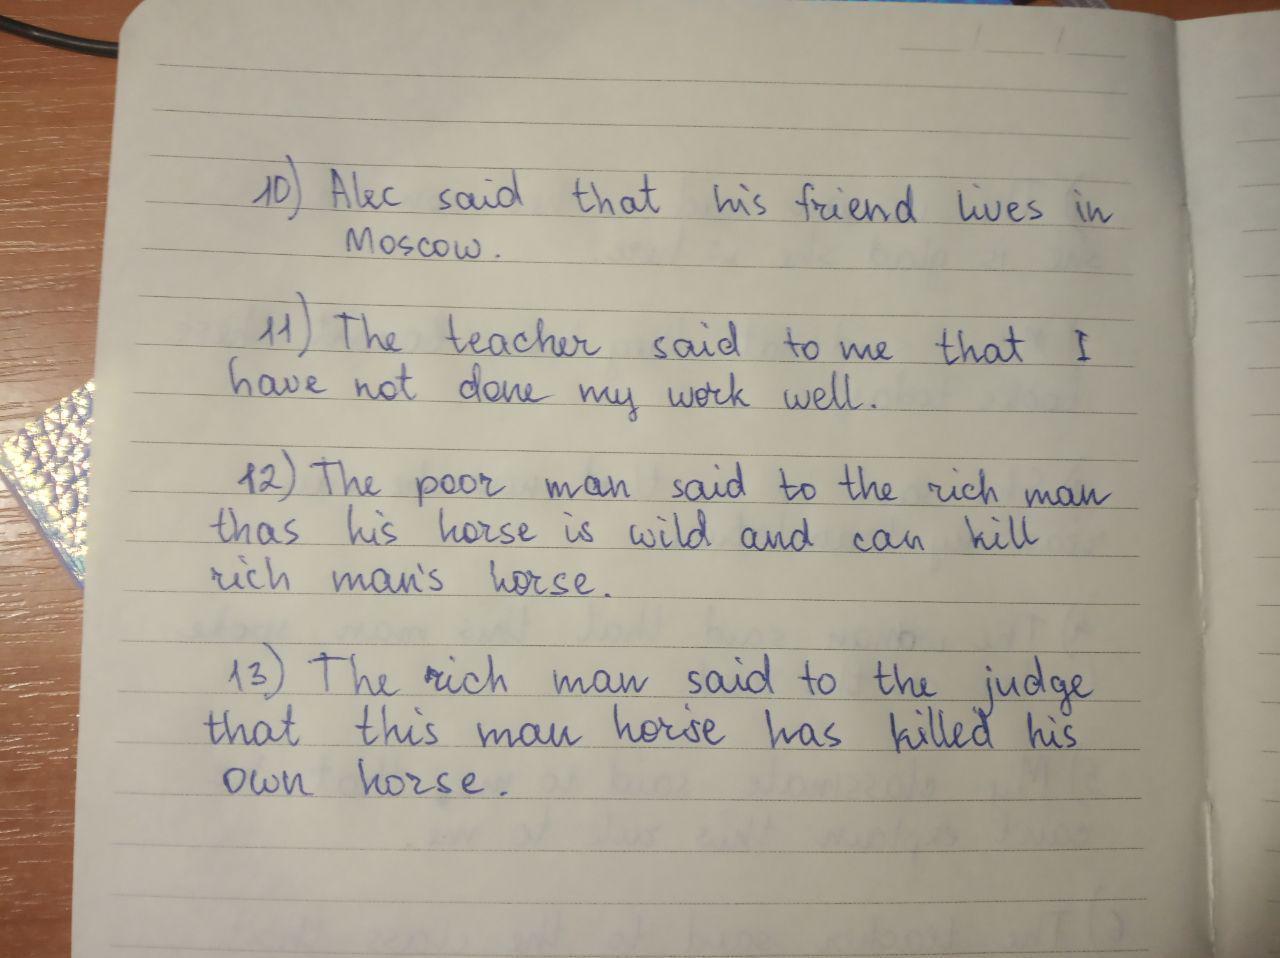 10) Alec said that his friend lives in
Moscow.
11) The teacher said to me that I
have not done my work well.
12) The poor man said to the rich man
thas his horse is wild and can kill
rich man's horse.
13) The rich man said to the judge
that this man horse has killed his
own horse.